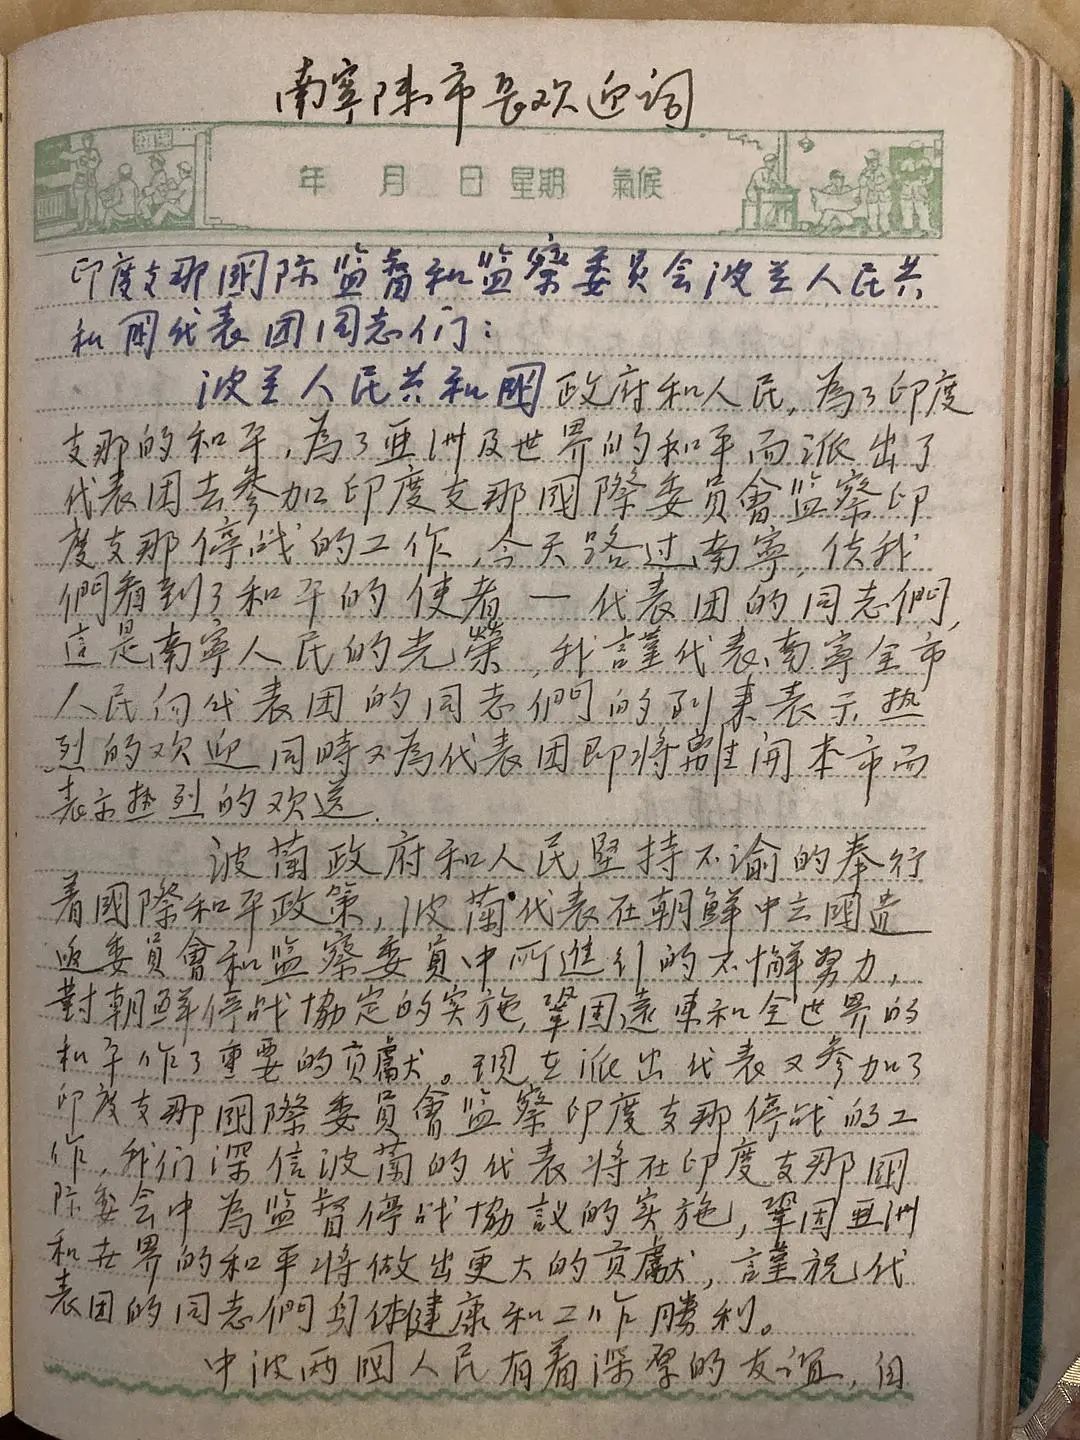 南寧陳市長欢迎词
年 月 日 星期 氣候
印度支那國际监督和监察委员会波兰人民共
和国代表团同志们：
波兰人民共和國政府和人民，為了印度
支那的和平，為了亚洲及世界的和平而派出了
代表团去参加印度支那國際委員會监察印
度支那停战的工作，今天路过南寧，使我
們看到了和平的使者—代表团的同志們，
這是南寧人民的光榮，我謹代表南寧全市
人民向代表团的同志們的到来表示热
烈的欢迎同時又為代表团即将離開本市而
表示热烈的欢送.
波蘭政府和人民坚持不渝的奉行
着國際和平政策，波蘭代表在朝鮮中立國遣
返委員會和监察委員中所進行的不懈努力，
對朝鮮停战協定的实施，鞏固遠東和全世界的
和平作了重要的贡獻。現在派出代表又参加了
印度支那國際委員會监察印度支那停战的工
作，我们深信波蘭的代表将在印度支那國
际委会中為监督停战協議的实施，鞏固亚洲
和世界的和平将做出更大的贡獻，謹祝代
表团的同志們身体健康和工作勝利。
中波两國人民有着深厚的友谊，自